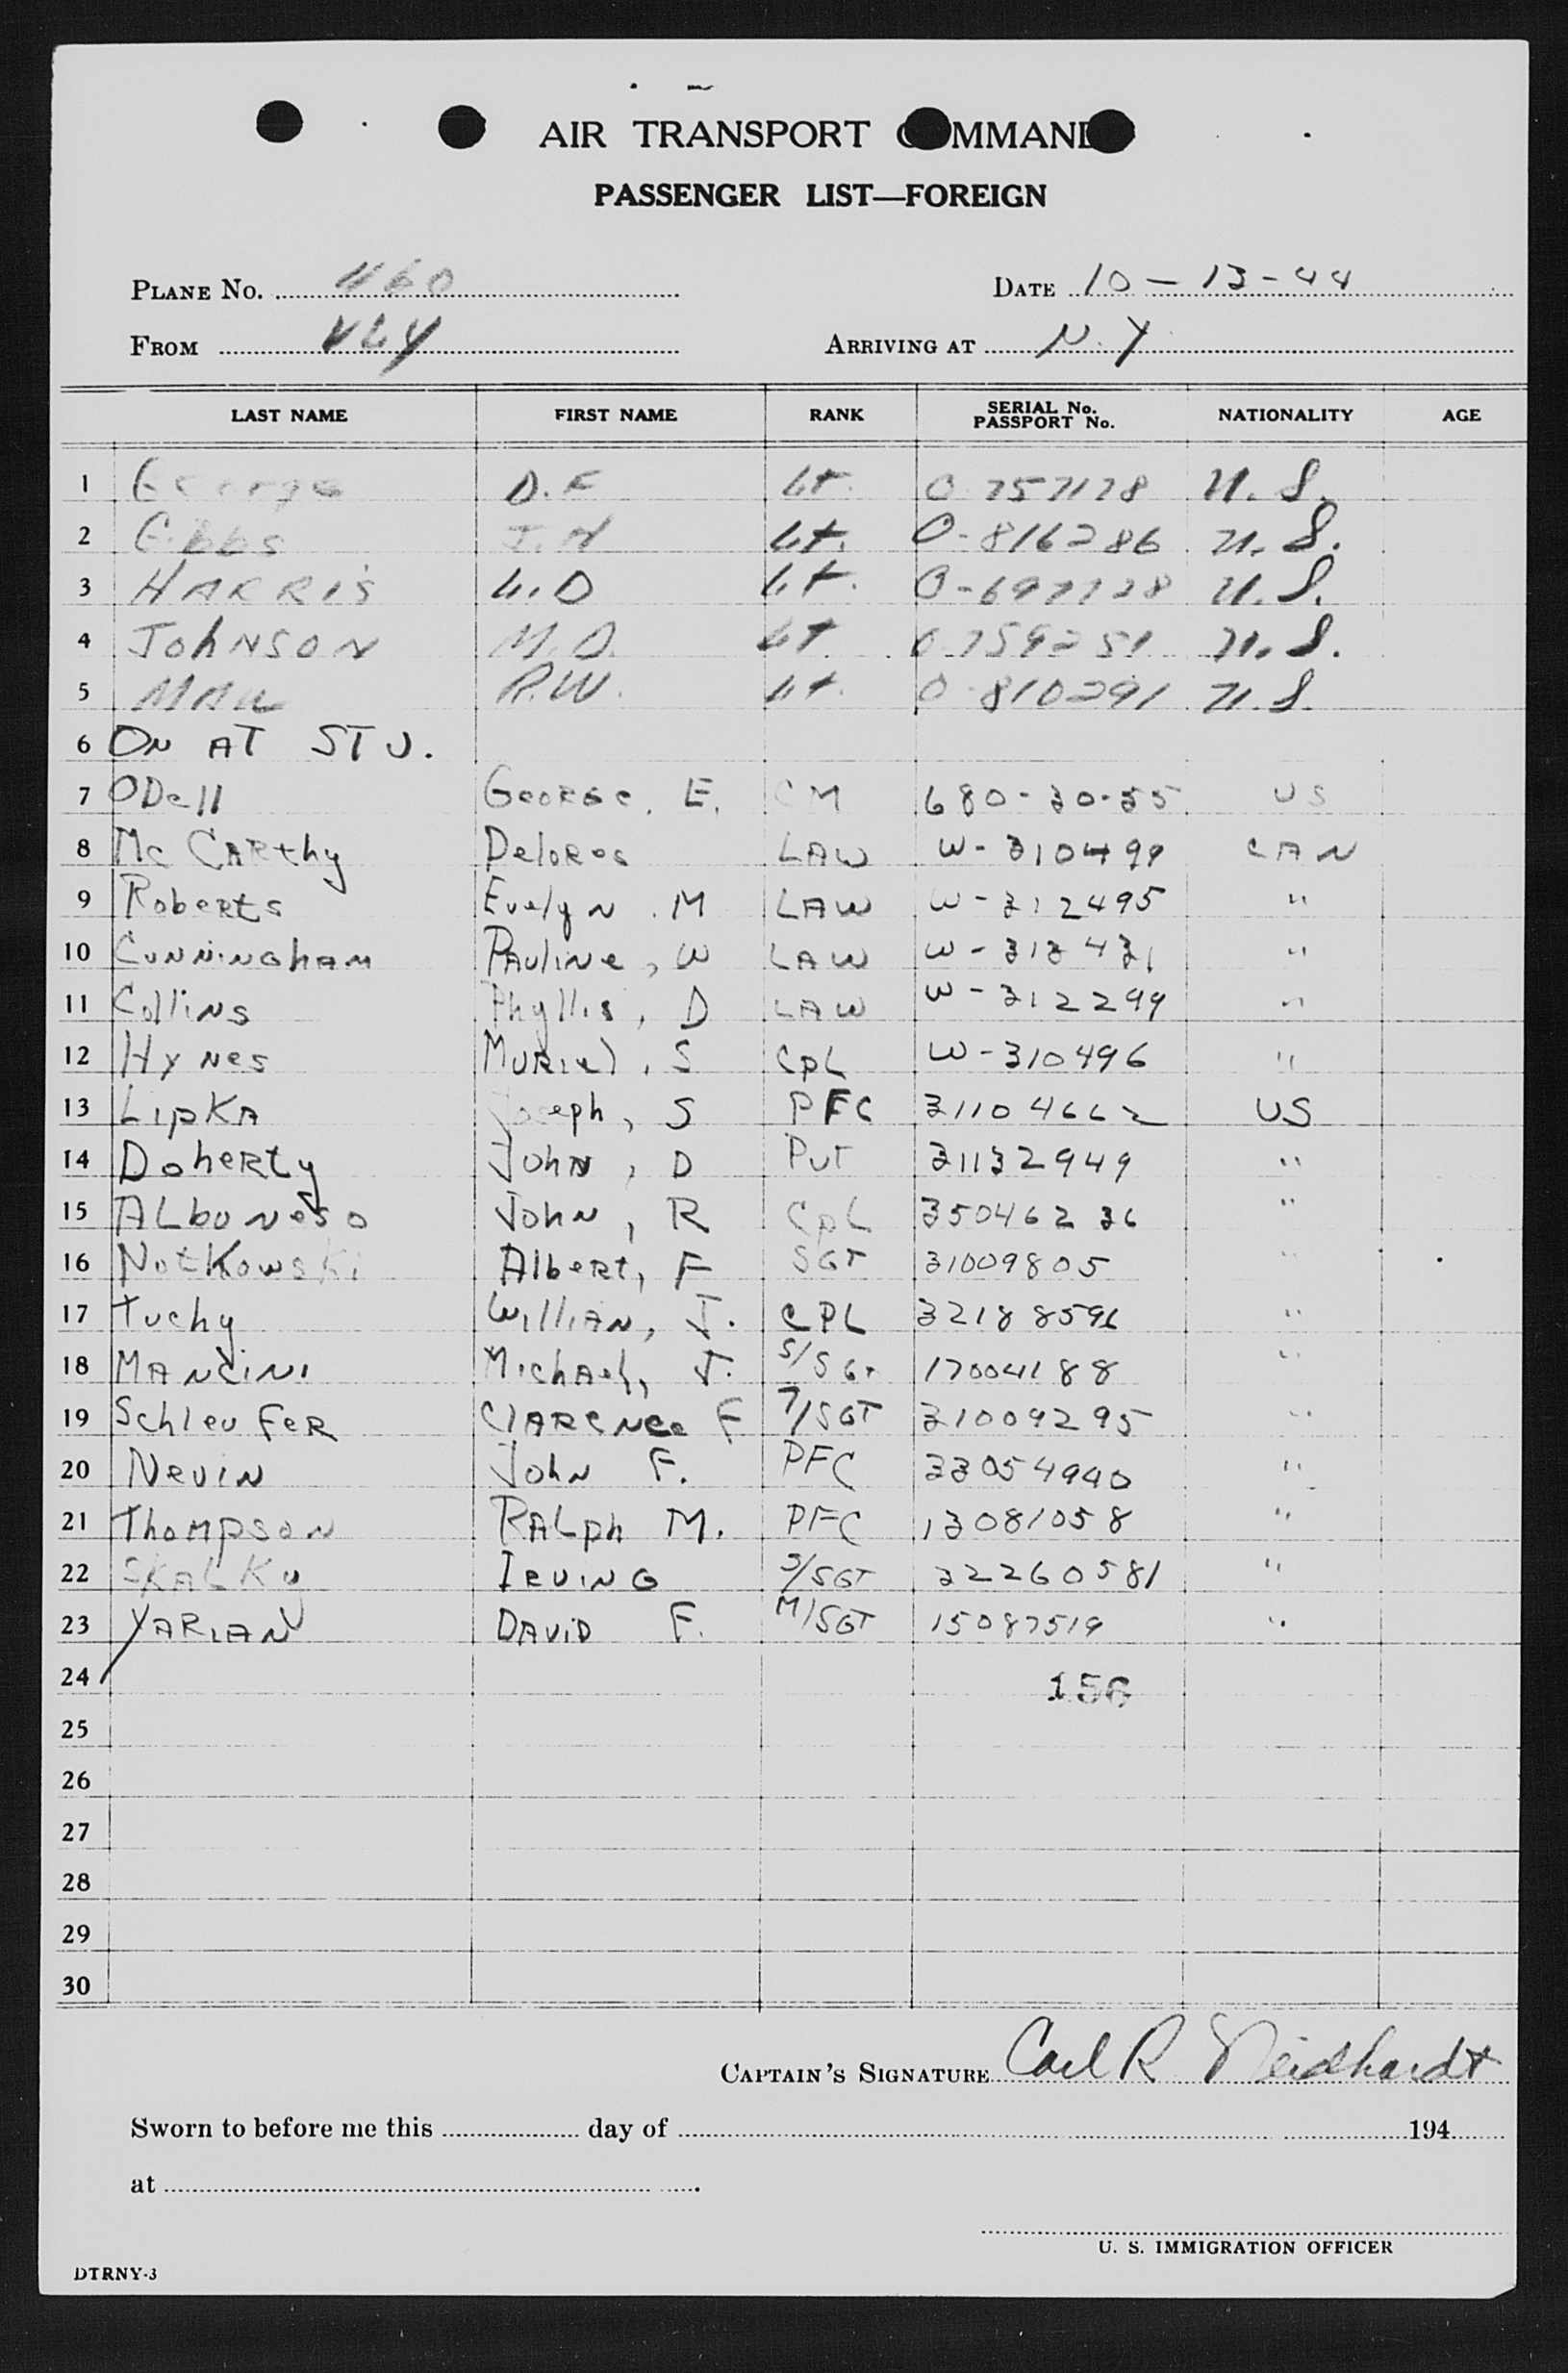 AIR TRANSPORT COMMAND
PASSENGER LIST—FOREIGN
PLANE No. 460 DATE 10-13-44
FROM VLY ARRIVING AT N.Y.
LAST NAME FIRST NAME RANK SERIAL No. PASSPORT No. NATIONALITY AGE
1 George D.F Lt. O 757178 U.S.
2 Gibbs J.N Lt. O-816286 U.S.
3 HARRIS L.D Lt. O-697128 U.S.
4 JOhNSON M.D. Lt O 759251 U.S.
5 R.W. Lt. O-810291 U.S.
6 ON AT ST J.
7 ODell GeoRGe. E. CM 680-30-35 US
8 Mc CARthy DeloRes LAW W-310499 CAN
9 Roberts Evelyn .M LAW W-312495 "
10 CUNNiNGhAM PAuliNe, W LAW W-313431 "
11 ColliNs Phyllis, D LAW W-312299 "
12 HyNes MURiel, S CpL W-310496 "
13 LipKA Joseph, S PFC 31104662 US
14 DoheRty JohN, D Pvt 31132949 "
15 ALboNeso JohN, R CpL 35046236 "
16 NotKowski AlbeRt, F SGT 31009805 "
17 Tuchy WilliAN, J. CPL 32188596 "
18 MANCiNi MichAel, J. S/SGt 17004188 "
19 SchleufeR ClAReNce F T/SGT 31009295 "
20 NeviN JohN F. PFC 33054940 "
21 ThoMpsoN RALph M. PFC 13081058 "
22 SKALKy IRviNG S/SGT 32260581 "
23 YARiAN DAViD F. M/SGT 15087519 "
24 156
25
26
27
28
29
30
CAPTAIN'S SIGNATURE Carl R Neidhardt
Sworn to before me this day of 194
at .
U. S. IMMIGRATION OFFICER
DTRNY-3